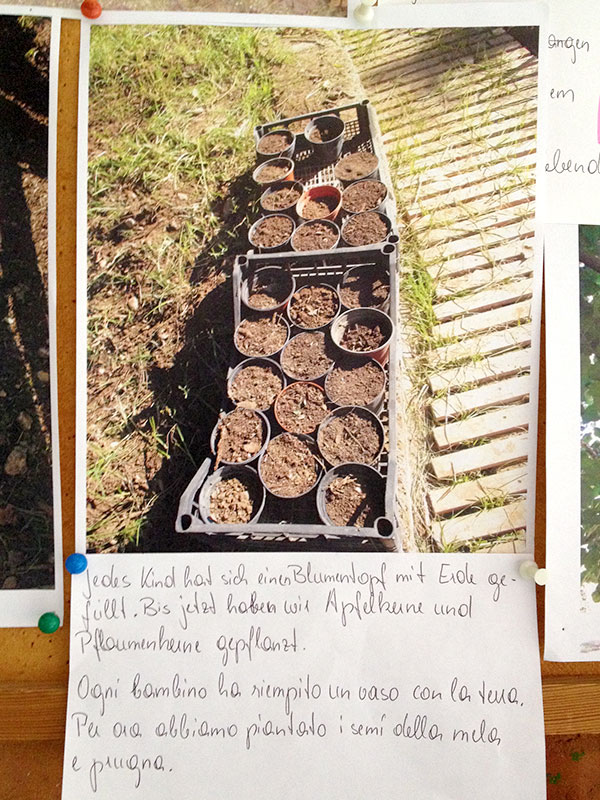 angen
em
ebend
Jedes Kind hat sich einen Blumentopf mit Erde ge-
füllt. Bis jetzt haben wir Apfelkerne und
Pflaumenkerne gepflanzt.
Ogni bambino ha riempito un vaso con la terra.
Per ora abbiamo piantato i semi della mela
e prugna.